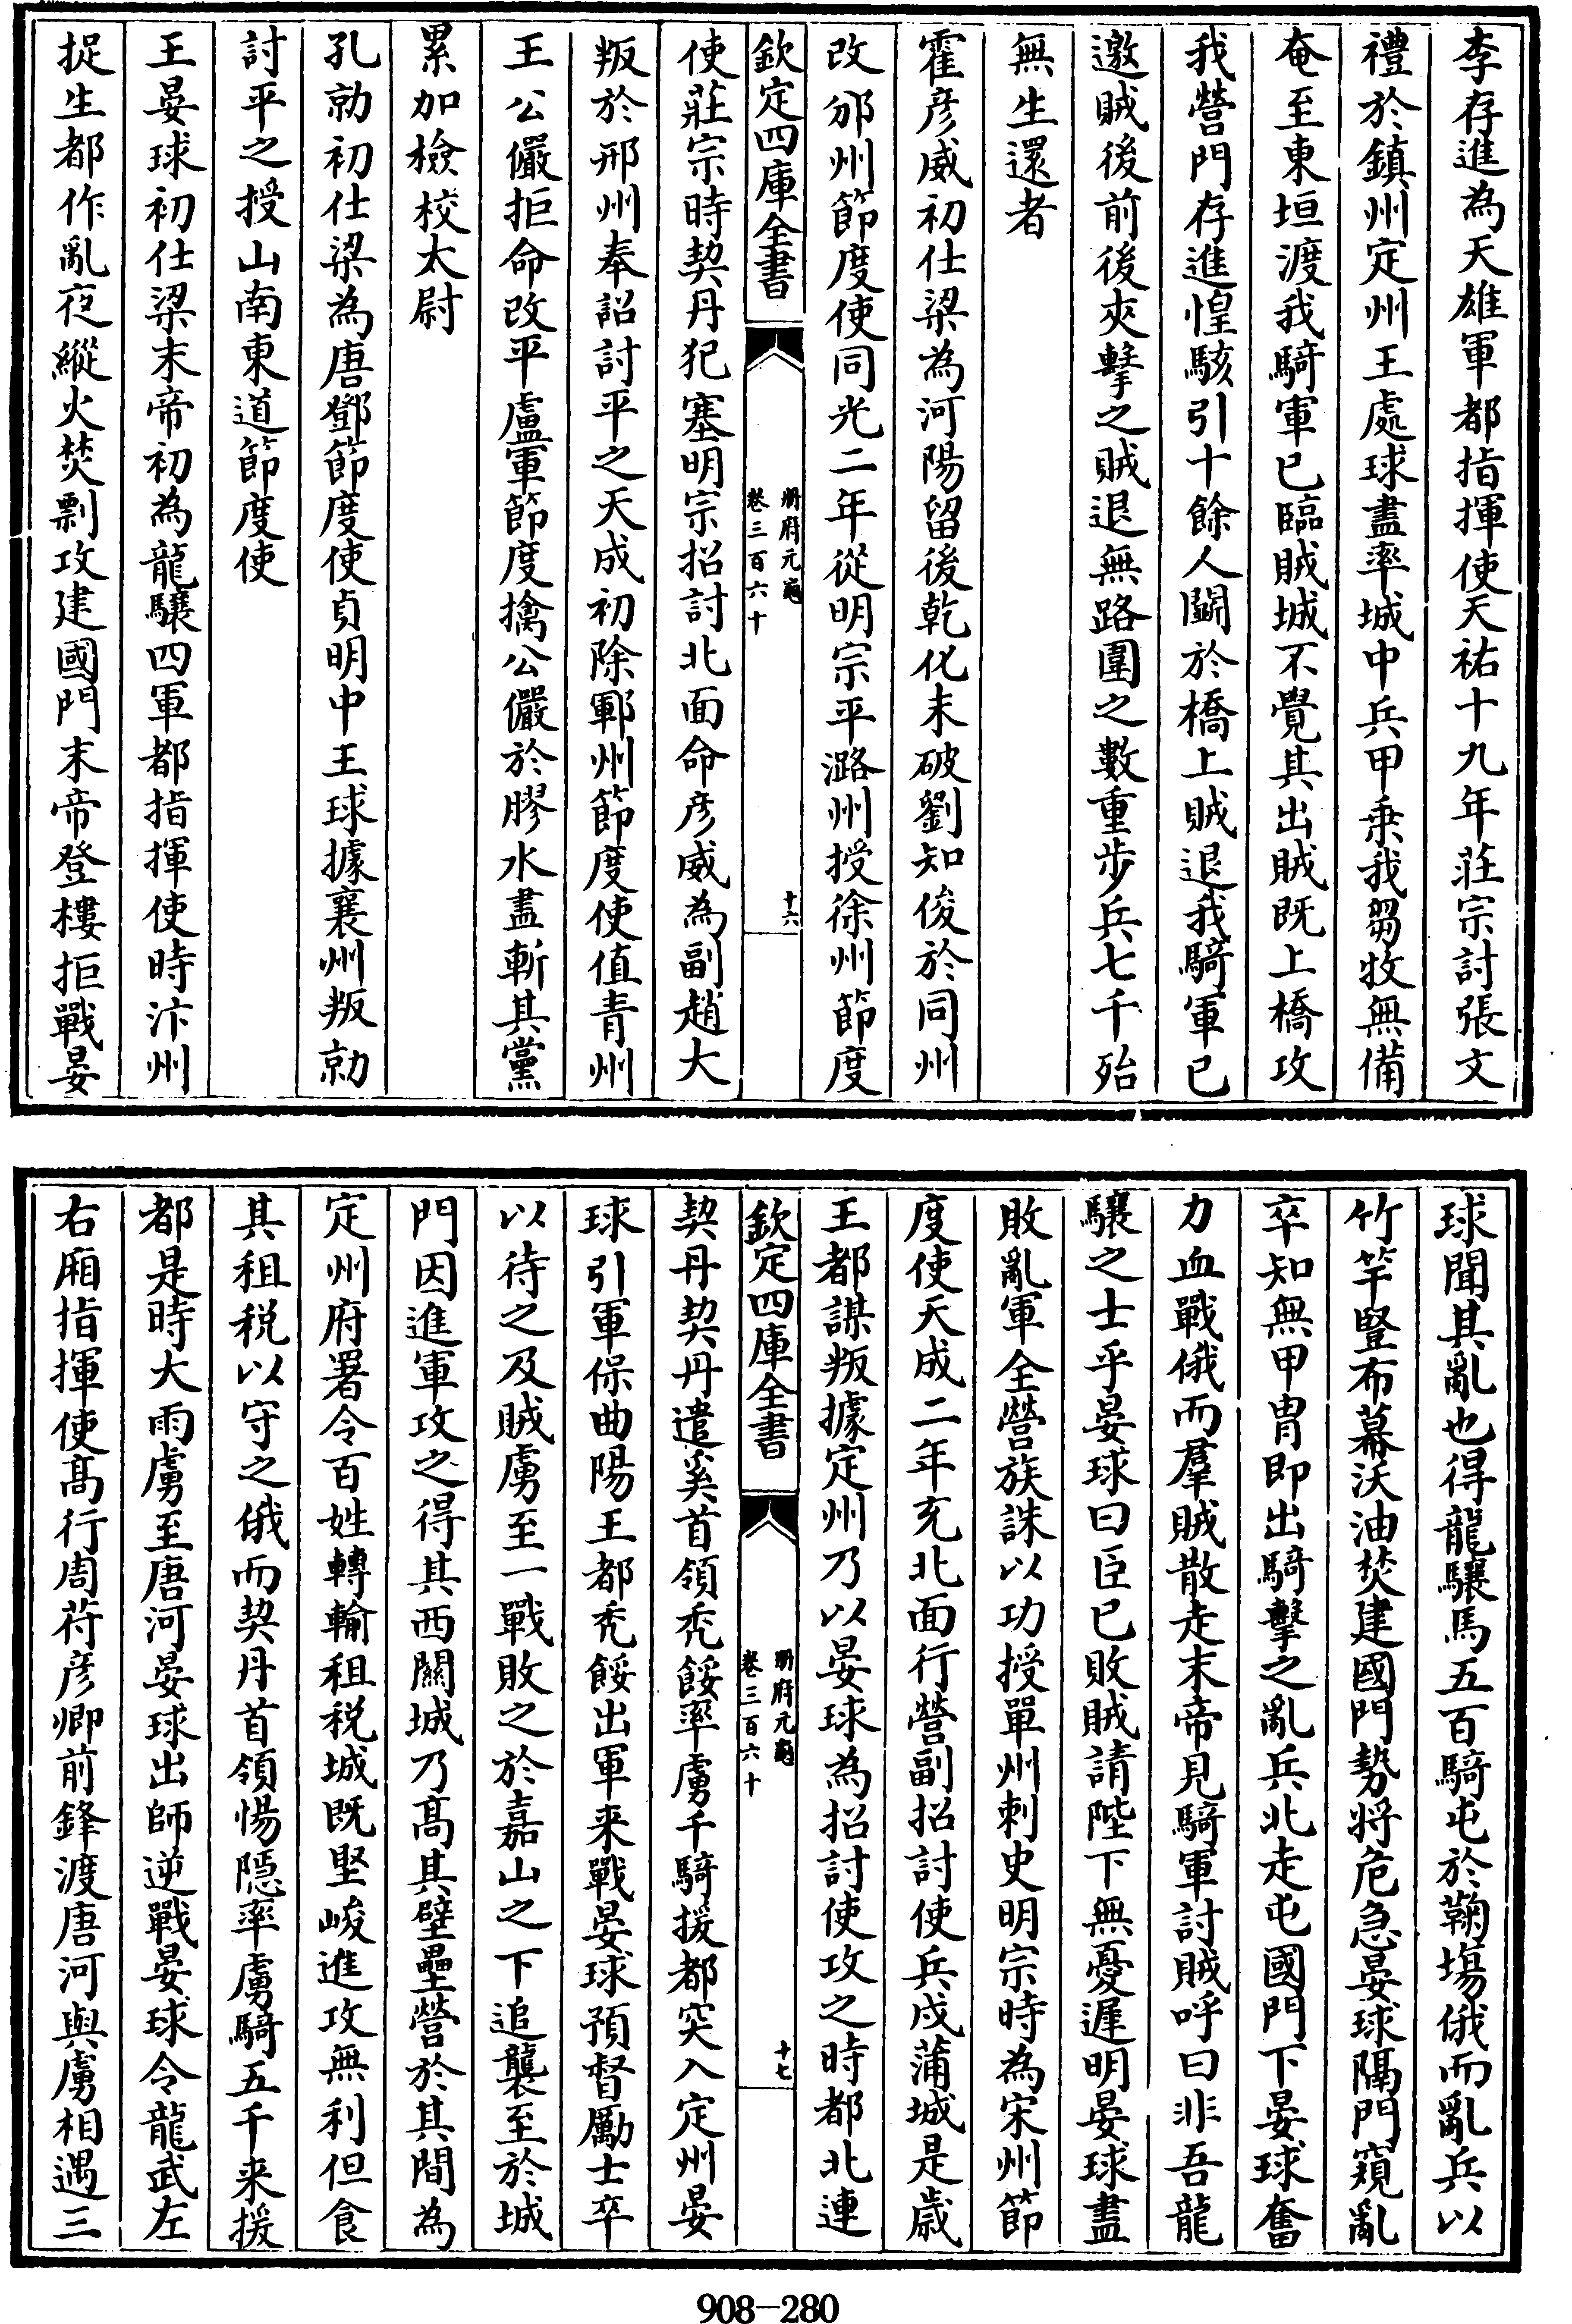 李存進為天雄軍都指揮使天祐十九年莊宗討張文
禮於鎮州定州王處球盡率城中兵甲乗我芻牧無備
奄至東垣渡我騎軍已臨賊城不覺其出賊既上橋攻
我營門存進惶駭引十餘人鬭於橋上賊退我騎軍已
邀賊後前後夾擊之賊退無路圍之數重步兵七千殆
無生還者
霍彦威初仕梁為河陽留後乾化末破劉知俊於同州
改邠州節度使同光二年從明宗平潞州授徐州節度
欽定四庫全書
冊府元龜
卷三百六十
十六
使莊宗時契丹犯塞明宗招討北面命彦威為副趙大
叛於邢州奉詔討平之天成初除鄆州節度使值青州
王公儼拒命改平盧軍節度擒公儼於膠水盡斬其黨
累加檢校太尉
孔勍初仕梁為唐鄧節度使貞明中王球據襄州叛勍
討平之授山南東道節度使
王晏球初仕梁末帝初為龍驤四軍都指揮使時汴州
捉生都作亂夜縱火焚剽攻建國門末帝登樓拒戰晏
球聞其亂也得龍驤馬五百騎屯於鞠場俄而亂兵以
竹竿豎布幕沃油焚建國門勢將危急晏球隔門窺亂
卒知無甲胄即出騎擊之亂兵北走屯國門下晏球奮
力血戰俄而羣賊散走末帝見騎軍討賊呼曰非吾龍
驤之士乎晏球曰臣已敗賊請陛下無憂遲明晏球盡
敗亂軍全營族誅以功授單州刺史明宗時為宋州節
度使天成二年充北面行營副招討使兵戍蒲城是歲
王都謀叛據定州乃以晏球為招討使攻之時都北連
欽定四庫全書
冊府元龜
卷三百六十
十七
契丹契丹遣奚首領禿餒率虜千騎援都突入定州晏
球引軍保曲陽王都禿餒出軍来戰晏球預督勵士卒
以待之及賊虜至一戰敗之於嘉山之下追襲至於城
門因進軍攻之得其西關城乃髙其壁壘營於其間為
定州府署令百姓轉輸租税城既堅峻進攻無利但食
其租税以守之俄而契丹首領惕隱率虜騎五千来援
都是時大雨虜至唐河晏球出師逆戰晏球令龍武左
右廂指揮使髙行周苻彦卿前鋒渡唐河與虜相遇三
908-280